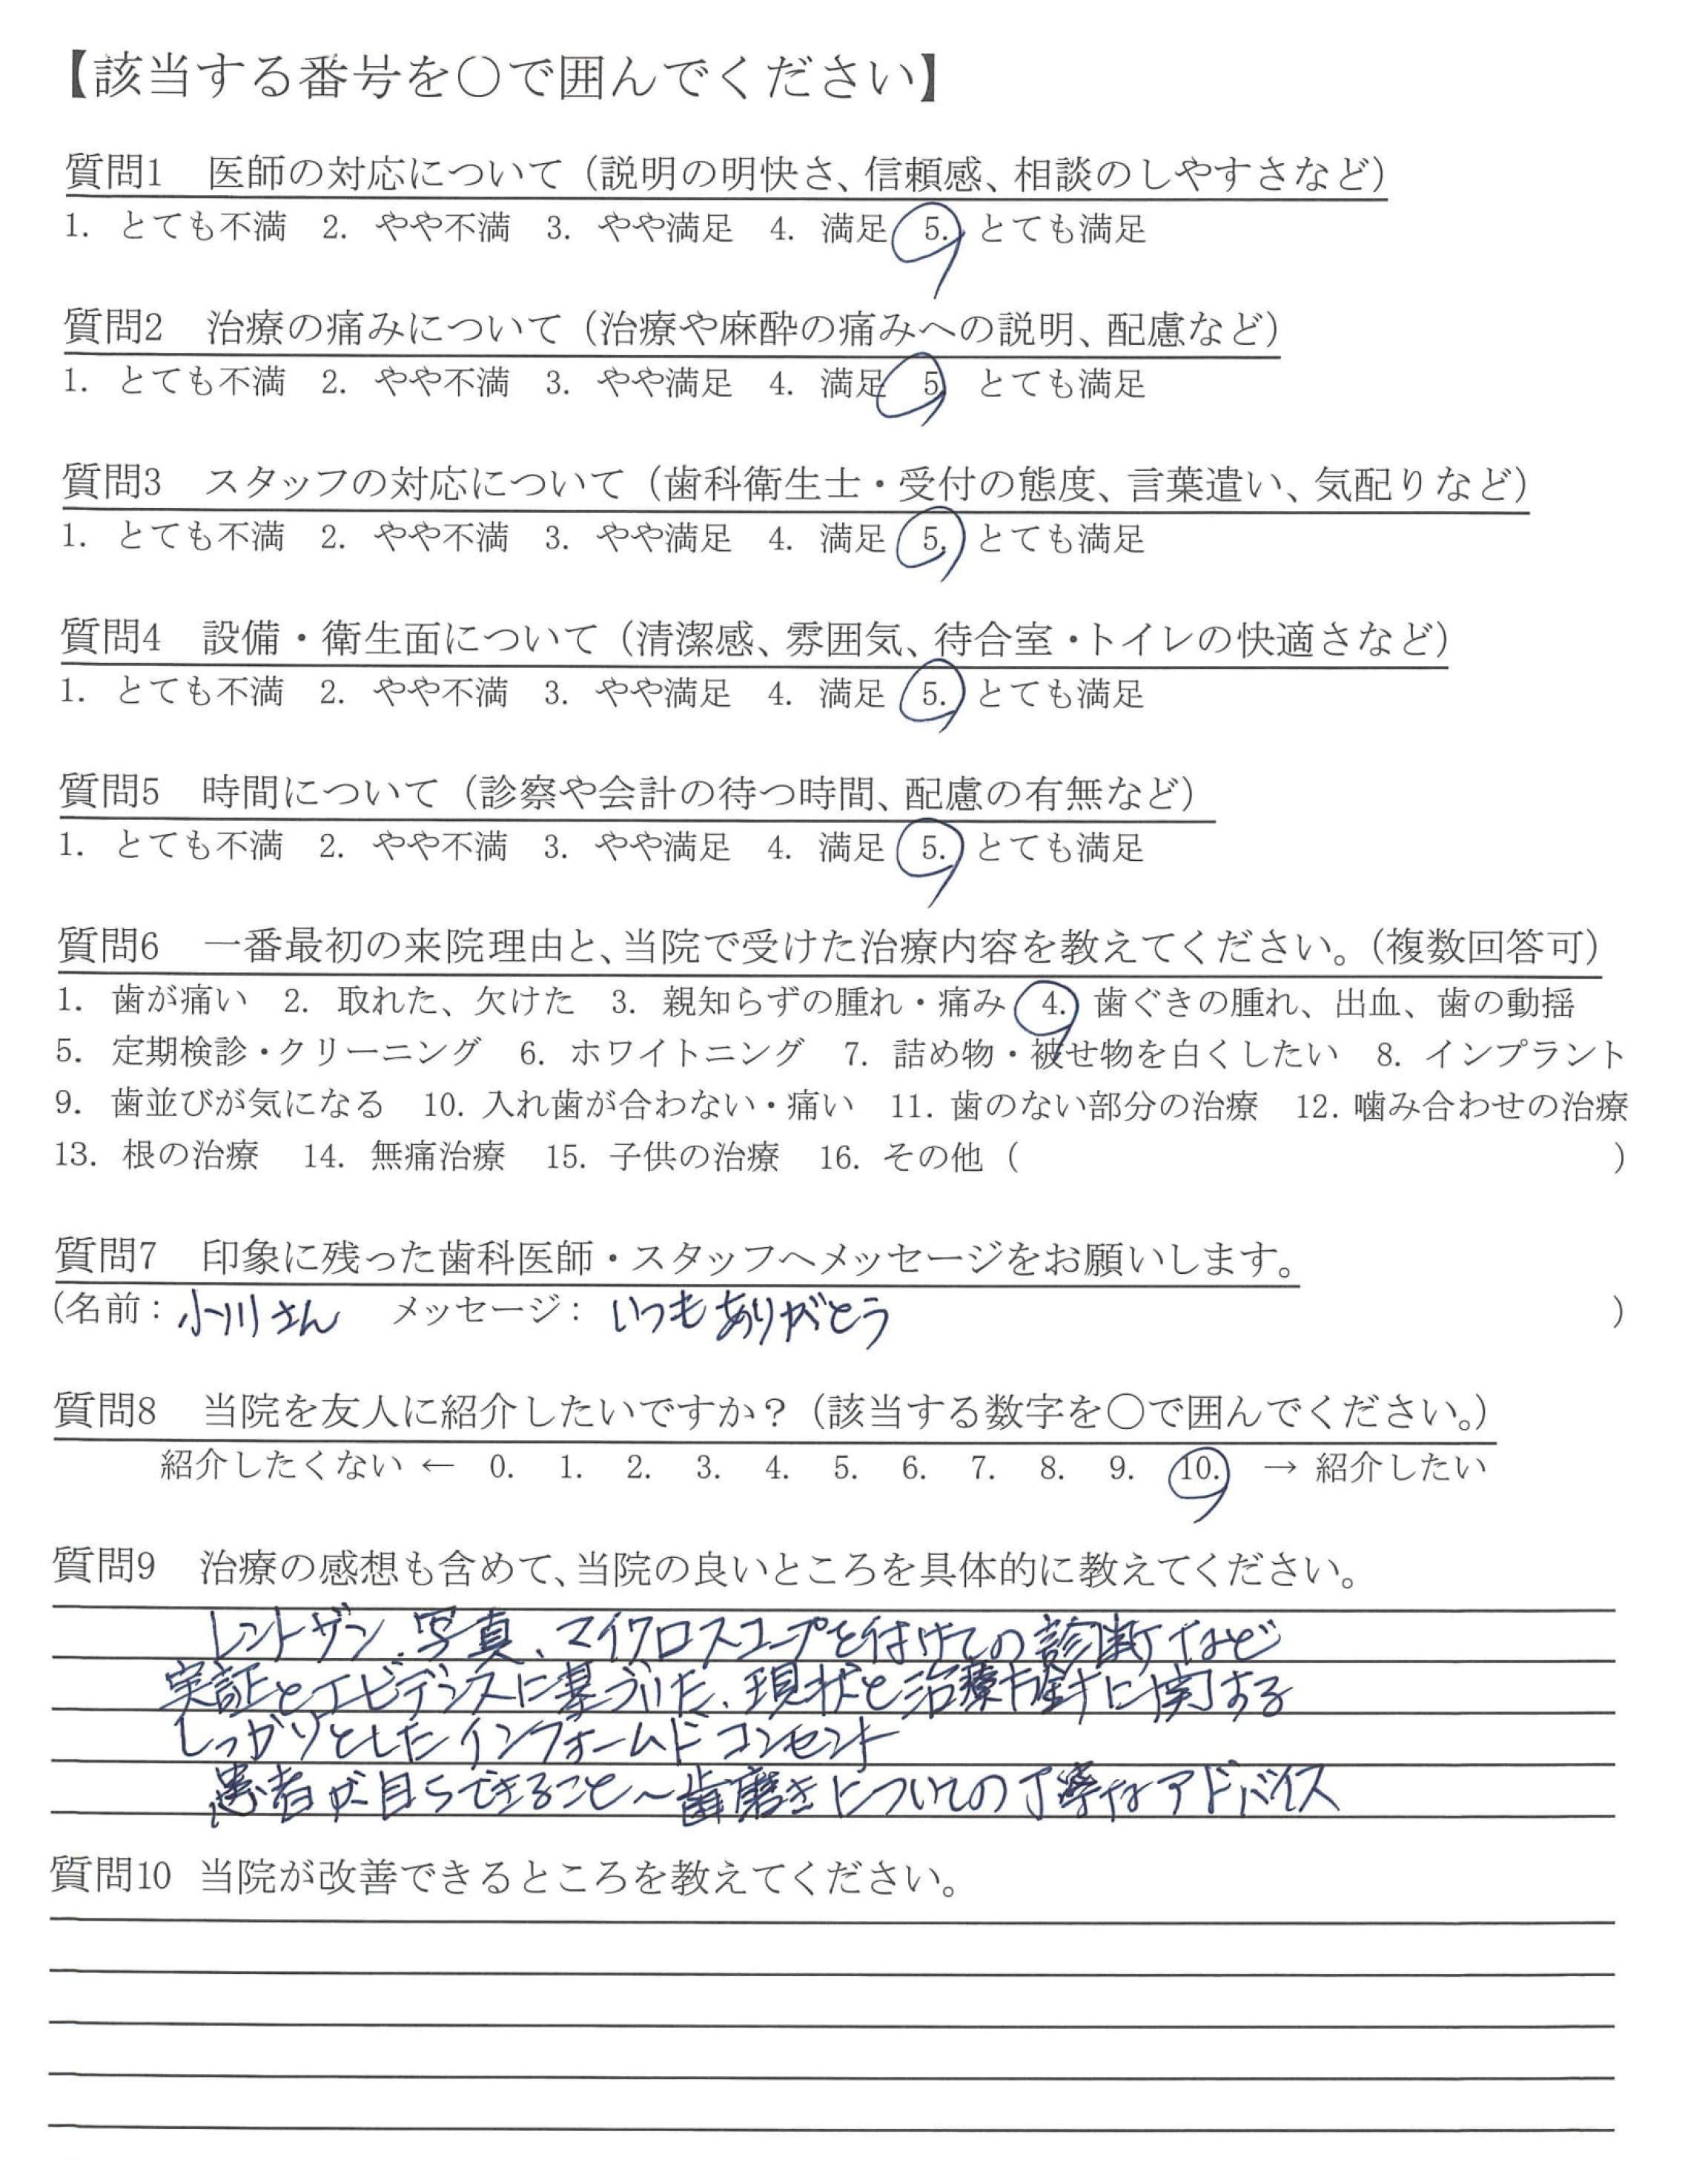 【該当する番号を○で囲んでください】
質問1 医師の対応について（説明の明快さ、信頼感、相談のしやすさなど）
1. とても不満 2. やや不満 3. やや満足 4. 満足 5. とても満足
質問2 治療の痛みについて（治療や麻酔の痛みへの説明、配慮など）
1. とても不満 2. やや不満 3. やや満足 4. 満足 5. とても満足
質問3 スタッフの対応について（歯科衛生士・受付の態度、言葉遣い、気配りなど）
1. とても不満 2. やや不満 3. やや満足 4. 満足 5. とても満足
質問4 設備・衛生面について（清潔感、雰囲気、待合室・トイレの快適さなど）
1. とても不満 2. やや不満 3. やや満足 4. 満足 5. とても満足
質問5 時間について（診察や会計の待つ時間、配慮の有無など）
1. とても不満 2. やや不満 3. やや満足 4. 満足 5. とても満足
質問6 一番最初の来院理由と、当院で受けた治療内容を教えてください。（複数回答可）
1. 歯が痛い 2. 取れた、欠けた 3. 親知らずの腫れ・痛み 4. 歯ぐきの腫れ、出血、歯の動揺
5. 定期検診・クリーニング 6. ホワイトニング 7. 詰め物・被せ物を白くしたい 8. インプラント
9. 歯並びが気になる 10. 入れ歯が合わない・痛い 11. 歯のない部分の治療 12. 噛み合わせの治療
13. 根の治療 14. 無痛治療 15. 子供の治療 16. その他（ ）
質問7 印象に残った歯科医師・スタッフへメッセージをお願いします。
（名前：小川さん メッセージ：いつもありがとう ）
質問8 当院を友人に紹介したいですか？（該当する数字を○で囲んでください。）
紹介したくない ← 0. 1. 2. 3. 4. 5. 6. 7. 8. 9. 10. → 紹介したい
質問9 治療の感想も含めて、当院の良いところを具体的に教えてください。
レントゲン、写真、マイクロスコープを付けての診断など
実証とエビデンスに基づいた、現状と治療方針に関する
しっかりとしたインフォームドコンセント
患者が自らできること～歯磨きについての丁寧なアドバイス
質問10 当院が改善できるところを教えてください。